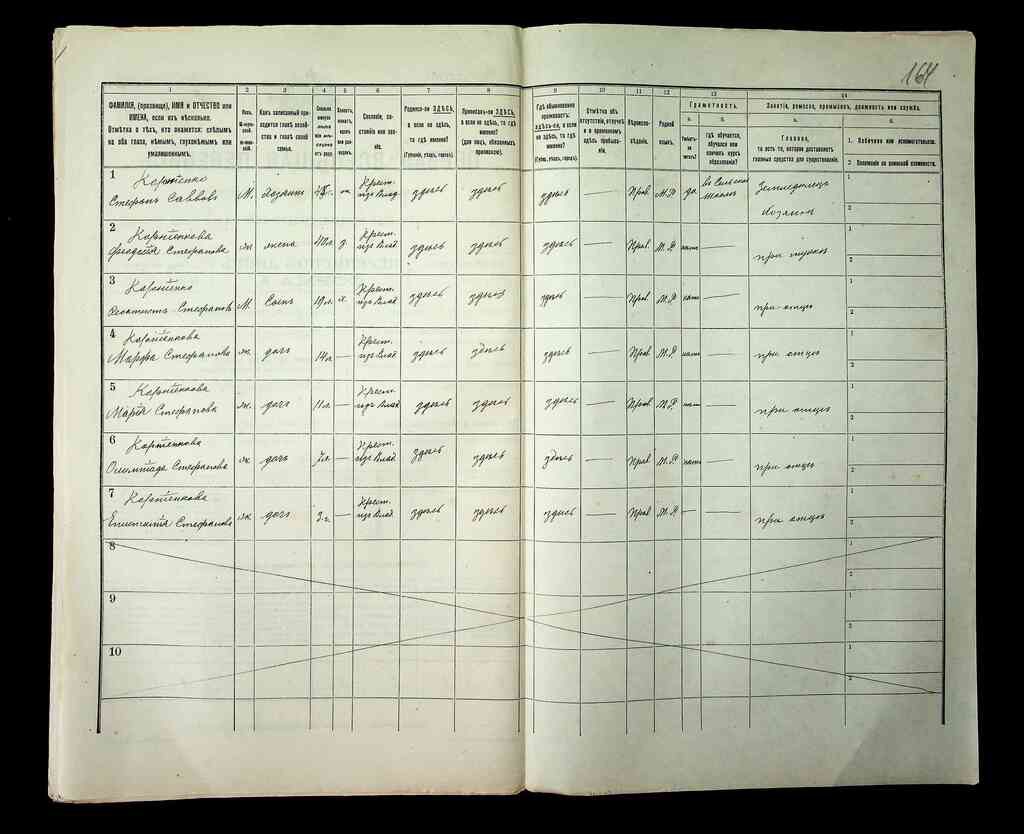 164
1
2
3
4
5
6
7
8
9
10
11
12
13
14
ФАМИЛІЯ, (прозвище), ИМЯ и ОТЧЕСТВО или ИМЕНА, если ихъ нѣсколько.
Отмѣтка о тѣхъ, кто окажется: слѣпымъ на оба глаза, нѣмымъ, глухонѣмымъ или умалишеннымъ.
Полъ.
Какъ записанный приходится главѣ хозяйства и главѣ своей семьи.
Сколько минуло лѣтъ или мѣсяцевъ отъ роду.
Сословіе, состояніе или званіе.
Родился-ли ЗДѢСЬ, а если не здѣсь, то гдѣ именно?
(Губернія, уѣздъ, городъ).
Приписанъ-ли ЗДѢСЬ, а если не здѣсь, то гдѣ именно?
(для лицъ, обязанныхъ припискою).
Гдѣ обыкновенно проживаетъ: здѣсь-ли, а если не здѣсь, то гдѣ именно?
(Губ., уѣздъ, городъ).
Отмѣтка объ отсутствіи, отлучкѣ и о временномъ здѣсь пребываніи.
Вѣроисповѣданіе.
Родной языкъ.
Грамотность.
а.
Умѣетъ-ли читать?
б.
гдѣ обучается, обучался или кончилъ курсъ образованія?
Занятіе, ремесло, промыселъ, должность или служба.
а.
Главное,
то есть то, которое доставляетъ главныя средства для существованія.
б.
1. Побочное или вспомогательное.
2. Положеніе по воинской повинности.
1 Коротенко
Стефанъ Саввовъ М. хозяинъ Крест. здѣсь здѣсь здѣсь — Прав. М.Р да въ Сельской школѣ Земледѣлецъ хозяинъ 1 2
2 Коротенкова
Феодосія Стефанова ж. жена 40 л. з. Крест. здѣсь здѣсь здѣсь — Прав. М.Р нѣтъ — при мужѣ 1 2
3 Коротенко
Стефановъ М. Сынъ 19 л. х. Крест. здѣсь здѣсь здѣсь — Прав М.Р нѣтъ — при отцѣ 1 2
4 Коротенкова
Марфа Стефанова ж. дочь 14 л. — Крест. здѣсь здѣсь здѣсь — Прав М.Р нѣтъ — при отцѣ 1 2
5 Коротенкова
Марія Стефанова ж. дочь 11 л. — Крест. здѣсь здѣсь здѣсь — Прав М.Р нѣтъ — при отцѣ 1 2
6 Коротенкова
Олимпіада Стефанова ж дочь 7 л. — Крест. здѣсь здѣсь здѣсь — Прав М.Р нѣтъ — при отцѣ 1 2
7 Коротенкова
Стефанова ж. дочь — Крест. здѣсь здѣсь здѣсь — Прав М.Р — — при отцѣ 1 2
8 1 2
9 1 2
10 1 2